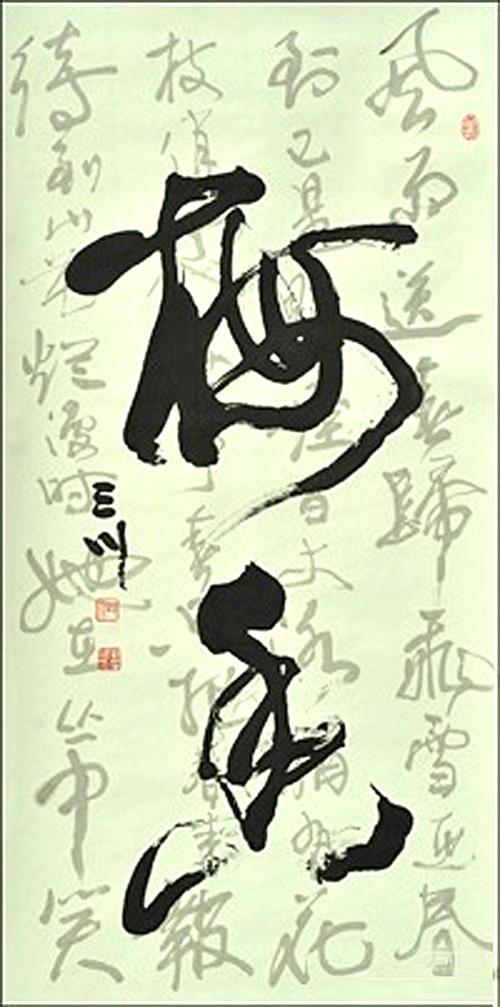 風雨送春歸飛雪迎春
到已是悬崖百丈冰犹有花
枝俏俏也不争春只把春来報
待到山花烂漫时她在丛中笑
梅香
三川